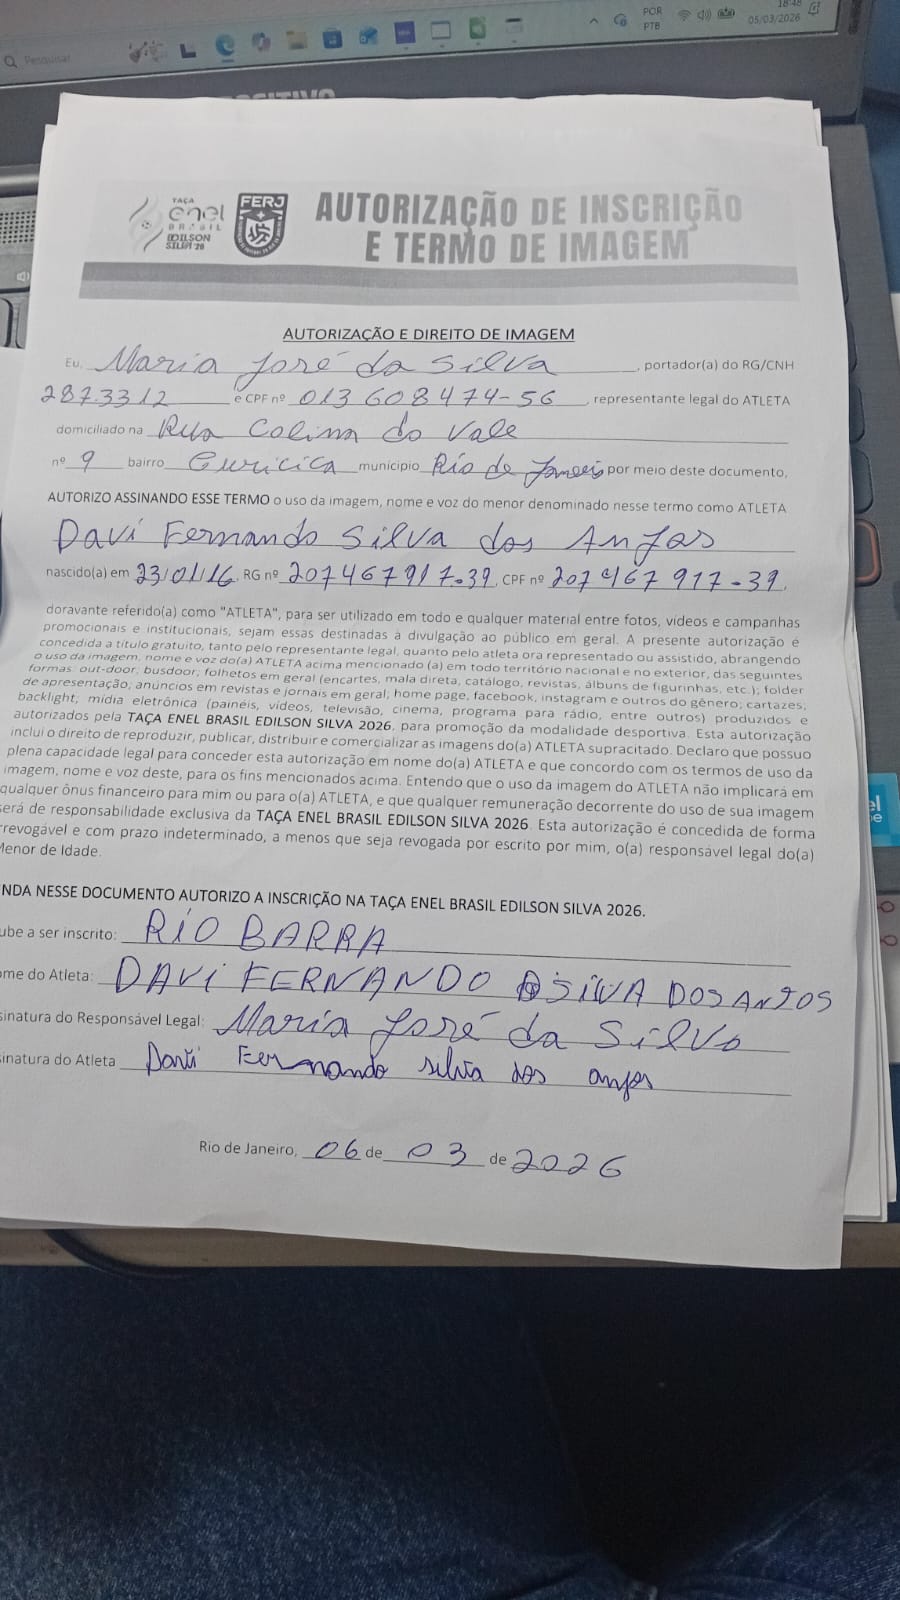 Pesquisar
POR
PTB
18:48
05/03/2026
POSITIVO
TAÇA
enel
BRASIL
EDILSON
SILVA '26
FERJ
AUTORIZAÇÃO DE INSCRIÇÃO
E TERMO DE IMAGEM
AUTORIZAÇÃO E DIREITO DE IMAGEM
Eu, Maria José da Silva, portador(a) do RG/CNH
287.3312 e CPF nº 013 608 474-56, representante legal do ATLETA
domiciliado na Rua Colina do Vale
nº 9 bairro Curicica município Rio de Janeiro por meio deste documento,
AUTORIZO ASSINANDO ESSE TERMO o uso da imagem, nome e voz do menor denominado nesse termo como ATLETA
Davi Fernando Silva dos Anjos
nascido(a) em 23/01/16, RG nº 207467917-39, CPF nº 207 467 917-39,
doravante referido(a) como "ATLETA", para ser utilizado em todo e qualquer material entre fotos, vídeos e campanhas
promocionais e institucionais, sejam essas destinadas à divulgação ao público em geral. A presente autorização é
concedida a título gratuito, tanto pelo representante legal, quanto pelo atleta ora representado ou assistido, abrangendo
o uso da imagem, nome e voz do(a) ATLETA acima mencionado (a) em todo território nacional e no exterior, das seguintes
formas: out-door; busdoor; folhetos em geral (encartes, mala direta, catálogo, revistas, álbuns de figurinhas, etc.); folder
de apresentação; anúncios em revistas e jornais em geral; home page, facebook, instagram e outros do gênero; cartazes;
backlight; mídia eletrônica (painéis, vídeos, televisão, cinema, programa para rádio, entre outros) produzidos e
autorizados pela TAÇA ENEL BRASIL EDILSON SILVA 2026, para promoção da modalidade desportiva. Esta autorização
inclui o direito de reproduzir, publicar, distribuir e comercializar as imagens do(a) ATLETA supracitado. Declaro que possuo
plena capacidade legal para conceder esta autorização em nome do(a) ATLETA e que concordo com os termos de uso da
imagem, nome e voz deste, para os fins mencionados acima. Entendo que o uso da imagem do ATLETA não implicará em
qualquer ônus financeiro para mim ou para o(a) ATLETA, e que qualquer remuneração decorrente do uso de sua imagem
será de responsabilidade exclusiva da TAÇA ENEL BRASIL EDILSON SILVA 2026. Esta autorização é concedida de forma
rrevogável e com prazo indeterminado, a menos que seja revogada por escrito por mim, o(a) responsável legal do(a)
Menor de Idade.
NDA NESSE DOCUMENTO AUTORIZO A INSCRIÇÃO NA TAÇA ENEL BRASIL EDILSON SILVA 2026.
ube a ser inscrito: RIO BARRA
ome do Atleta: DAVI FERNANDO SILVA DOS ANJOS
sinatura do Responsável Legal: Maria José da Silva
sinatura do Atleta Davi Fernando silva dos anjos
Rio de Janeiro, 06 de 03 de 2026